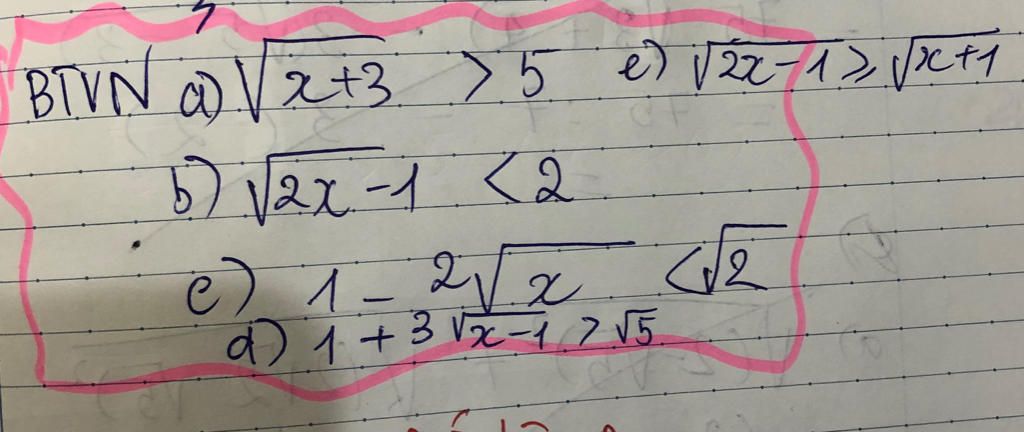 BTVN a) √(x+3) > 5 e) √(2x-1) ≥ √(x+1)
b) √(2x) - 1 < 2
c) 1 - 2√x < √2
d) 1 + 3√(x-1) > √5